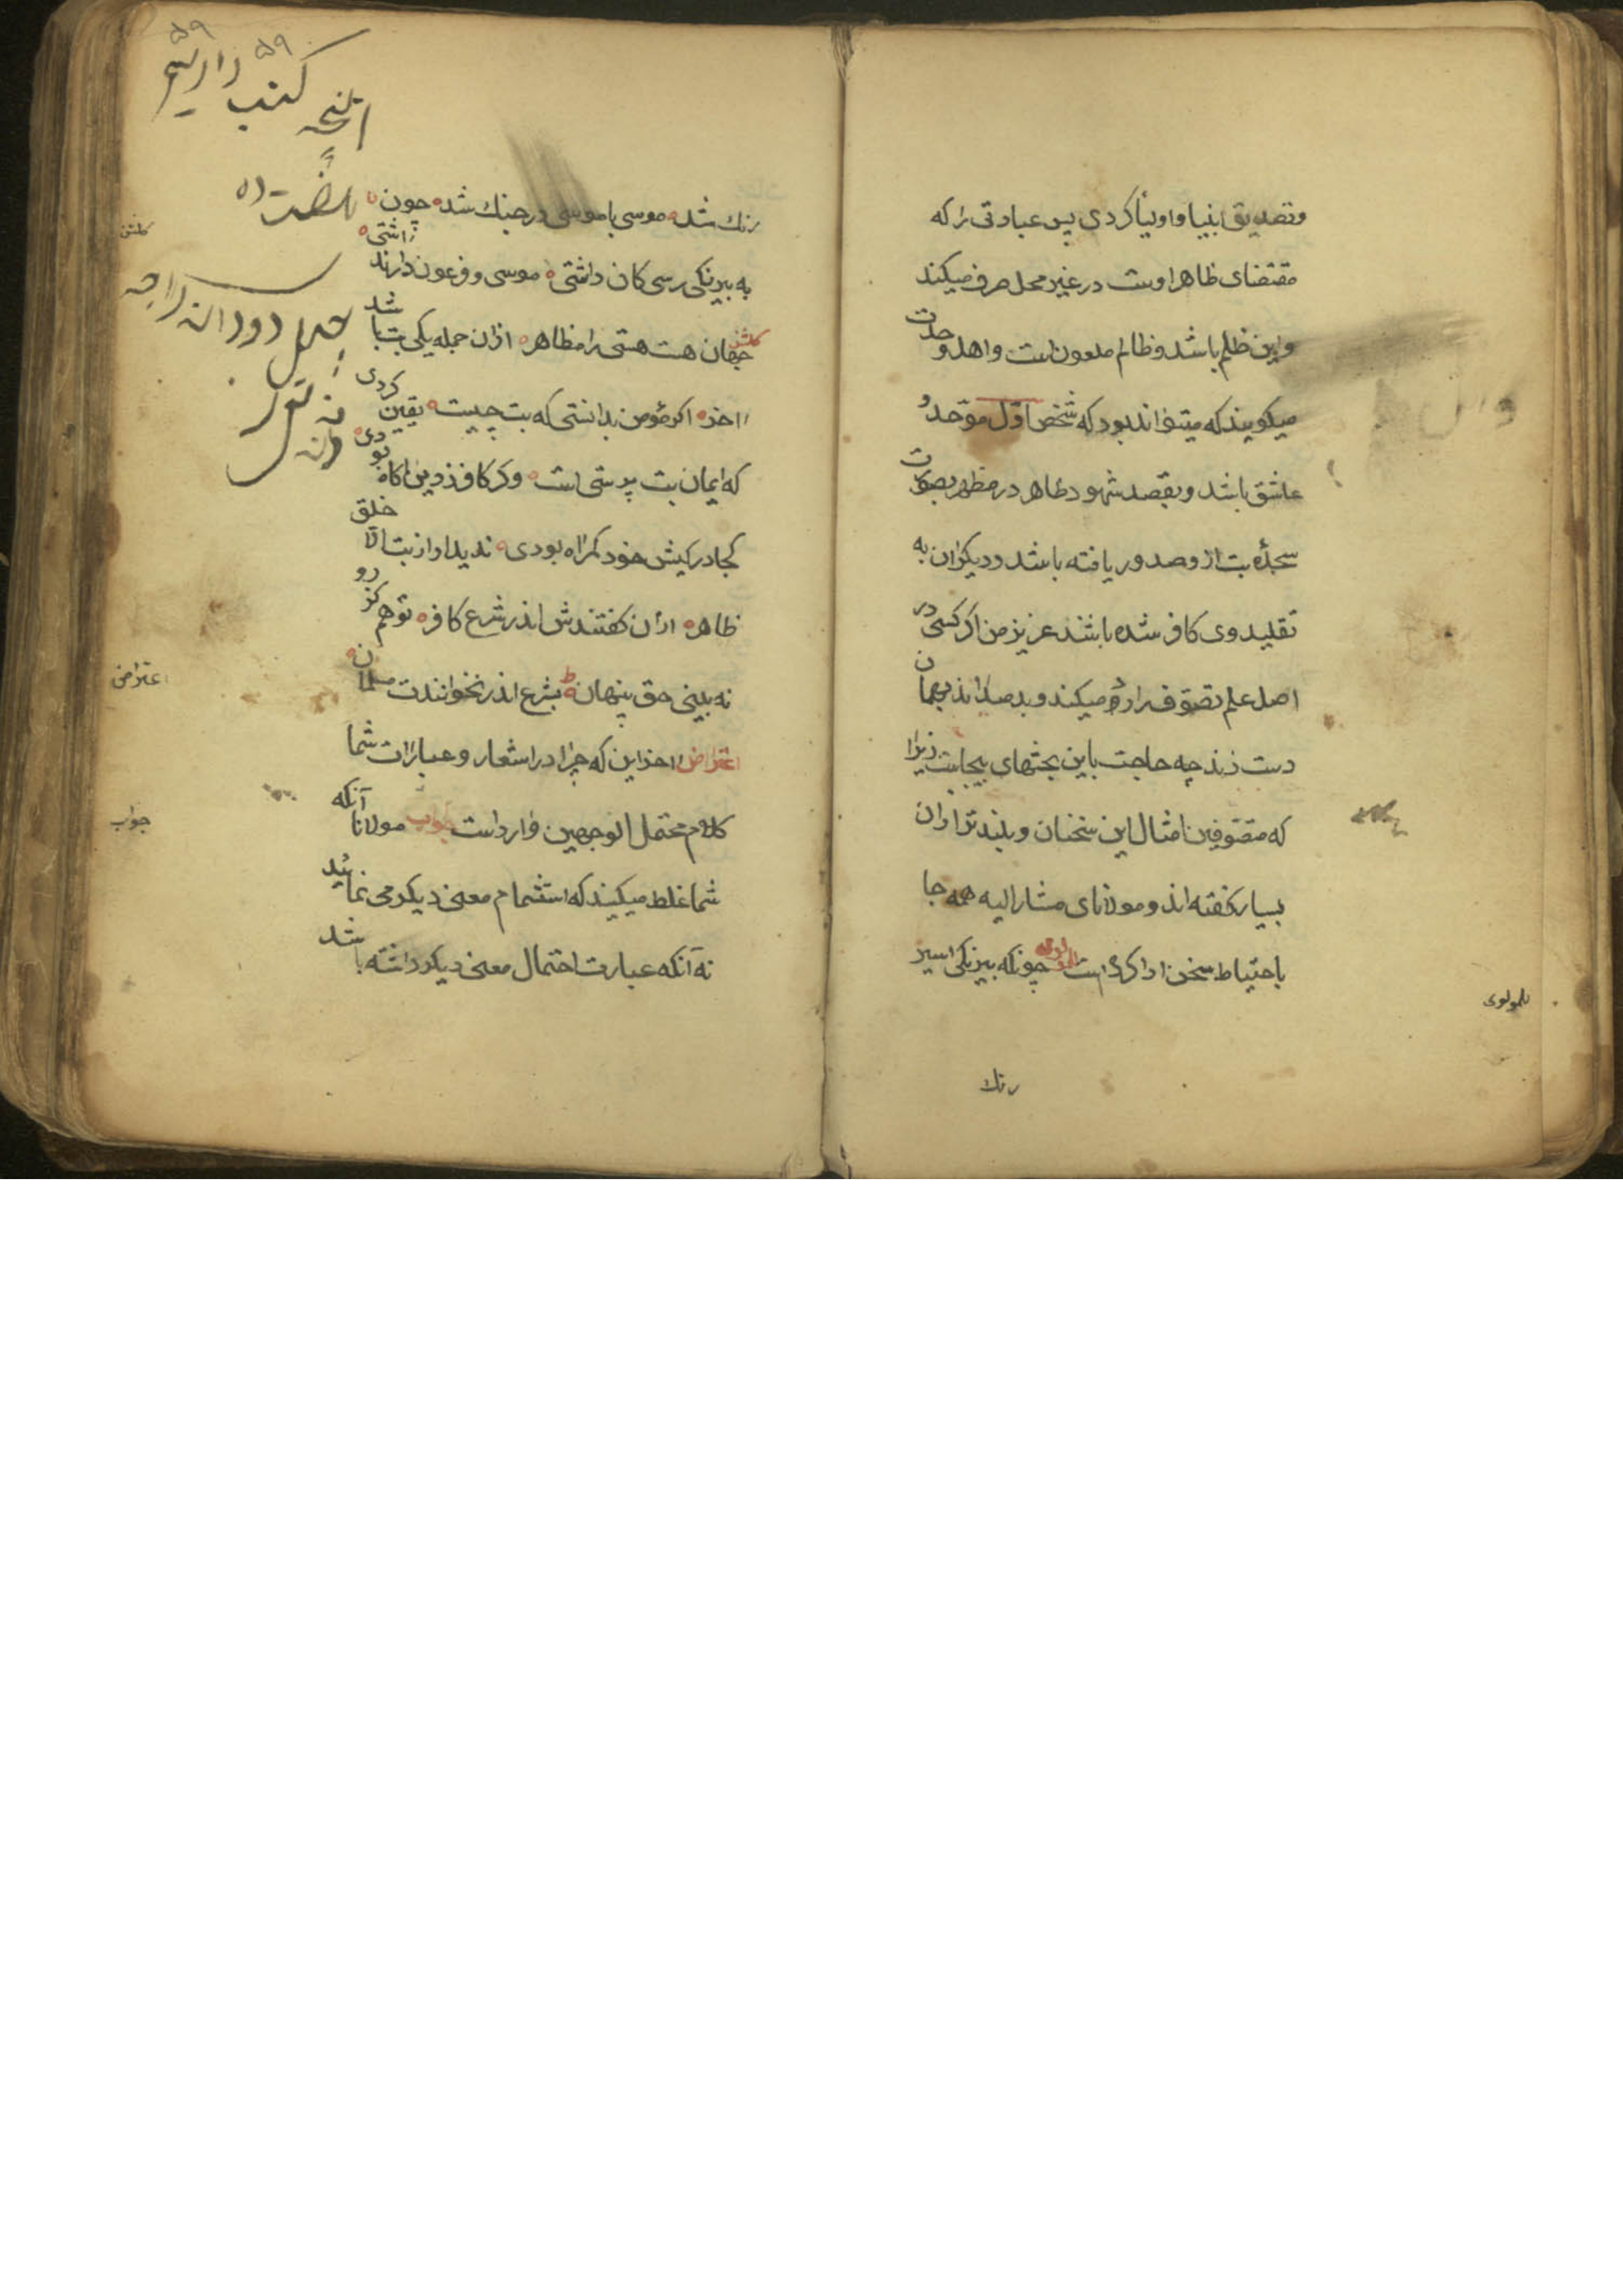 وتصدیق انبیا و اولیا کردی پس عبادتی را که
مقتضای ظاهر اوست در غیر محل صرف میکند
واین ظلم باشد و ظالم ملعون است و اهل وحدت
میکویند که میتواند بود که شخص اول موحد و
عاشق باشد و بقصد شهود ظاهر در مظهر بصورت
سجدهٔ بت از و صدور یافته باشد و دیکران به
تقلید وی کافر شده باشند عزیز من اکر کسی در
اصل علم تصوف میکند و بد میداند بهمان
دست زند چه حاجت باین بحثهای بیجاست زیرا
که متصوفین امثال این سخنان و بلند تر ازان
بسیار کفته اند و مولانای مشار الیه همه جا
باحتیاط سخن ادا کرده است چونکه بیرنکی اسیر
للمولوی
رنك
۵۹
۵۹
رنك شد موسی با موسی در جنك شد چون
به بیرنکی رسی کان داشتی موسی و فرعون دارند آشتی
کلشن
کلشن جهان هست هستی را مظاهر ازان جمله یکی بت باشد
اخر اکر مؤمن بدانستی که بت چیست یقین کردی
که ایمان بت پرستی است وکر کافر ز دین اکاه بودی
کجا در کیش خود کمراه بودی ندید او از بت الا خلق
ظاهر ازان کفتندش اندر شرع کافر تو هم کز رو
نه بینی حق پنهان بشرع اندر نخوانندت مسلمان
اعتراض
اعتراض اخر این که چرا در اشعار و عبارات شما
کلام محتمل الوجهین وارد است جواب مولانا آنکه
جواب
شما غلط میکنید که استشمام معنی دیکر می نمائید
نه آنکه عبارت احتمال معنی دیکر داشته باشد